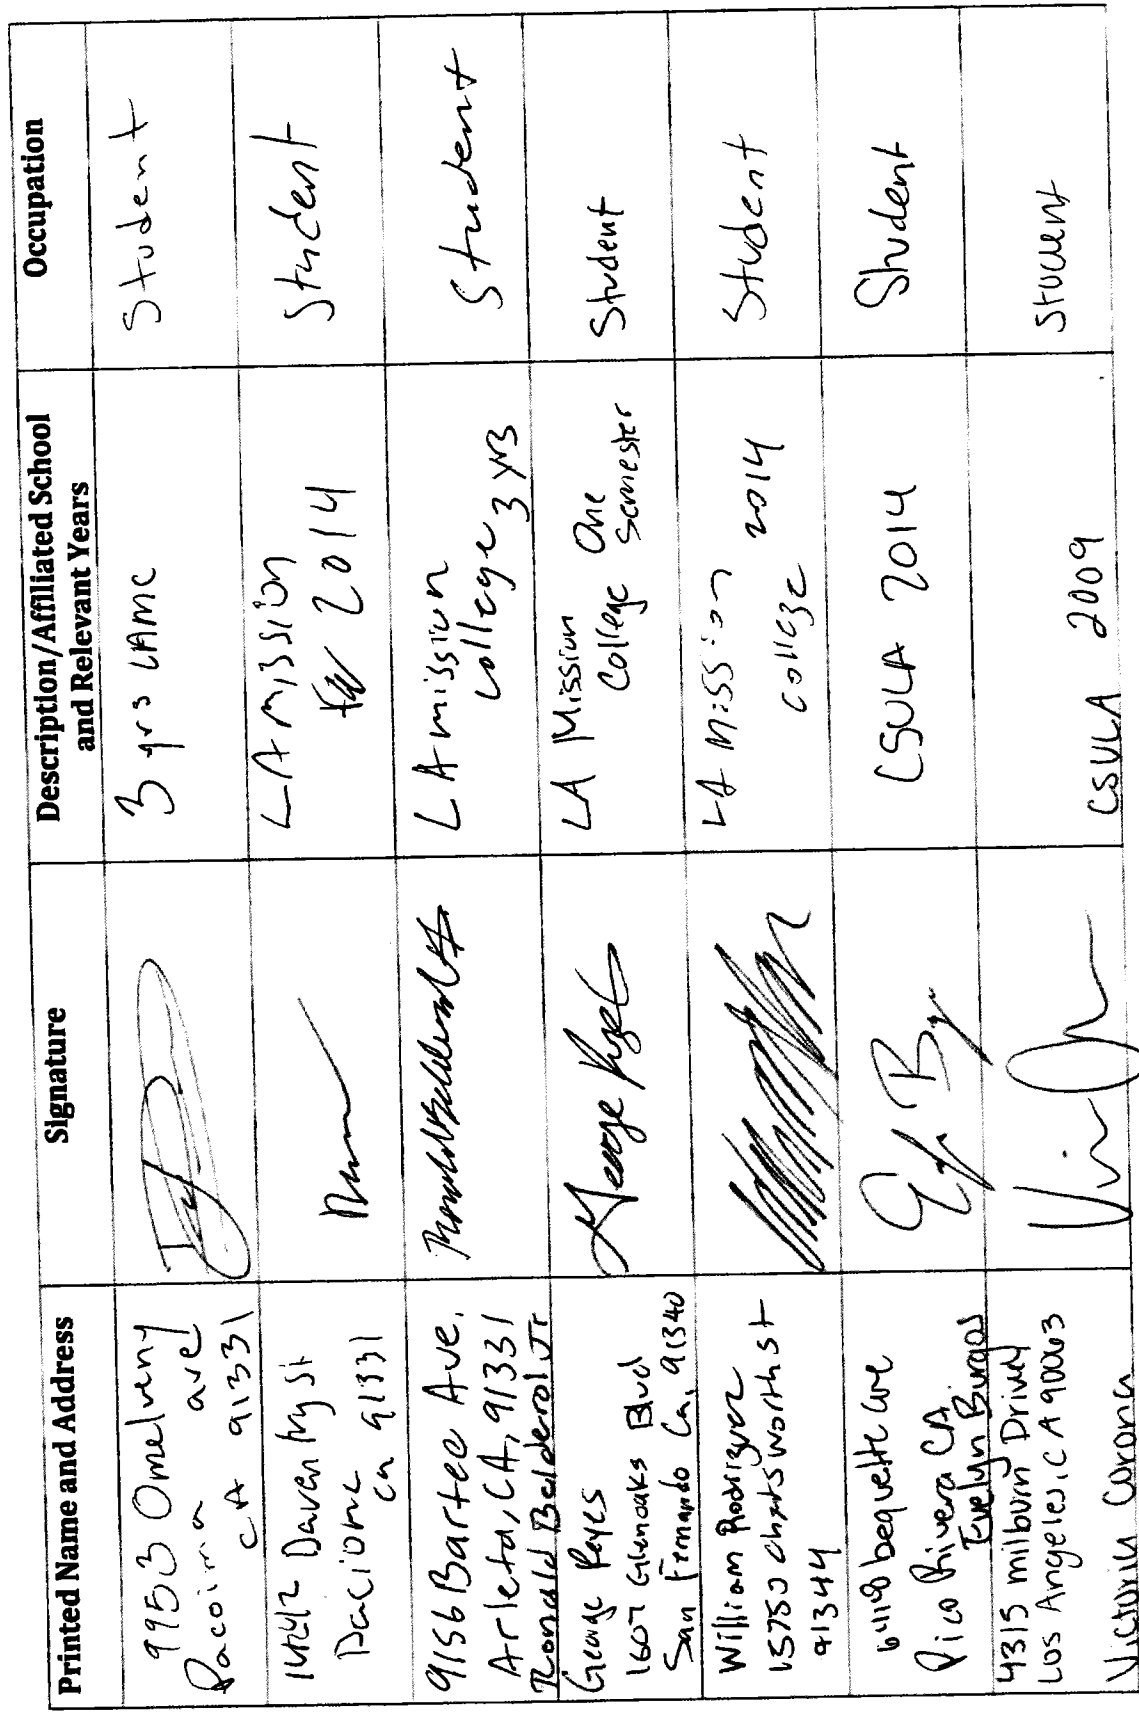 Printed Name and Address
Signature
Description/Affiliated School
and Relevant Years
Occupation
9953 Omelveny
Pacoima ave
CA 91331
3 yrs LAMC
Student
Daventry St
Pacioma
Ca 91331
LA mission
2014
Student
9156 Bartee Ave.
Arleta, CA, 91331
Ronald Balderol Jr
LA mission
college 3 yrs
Student
George Reyes
1607 Glenoaks Blvd
San Fernando Ca, 91340
George Reyes
LA Mission
College One
Semester
Student
William Rodriguez
15750 chatsworth st
91344
LA Mission
college 2014
Student
bequette ave
Pico Rivera CA.
Evelyn Burgos
CSULA 2014
Student
4315 milburn Drived
Los Angeles, CA 90063
Victoria Corona
CSULA 2009
Student